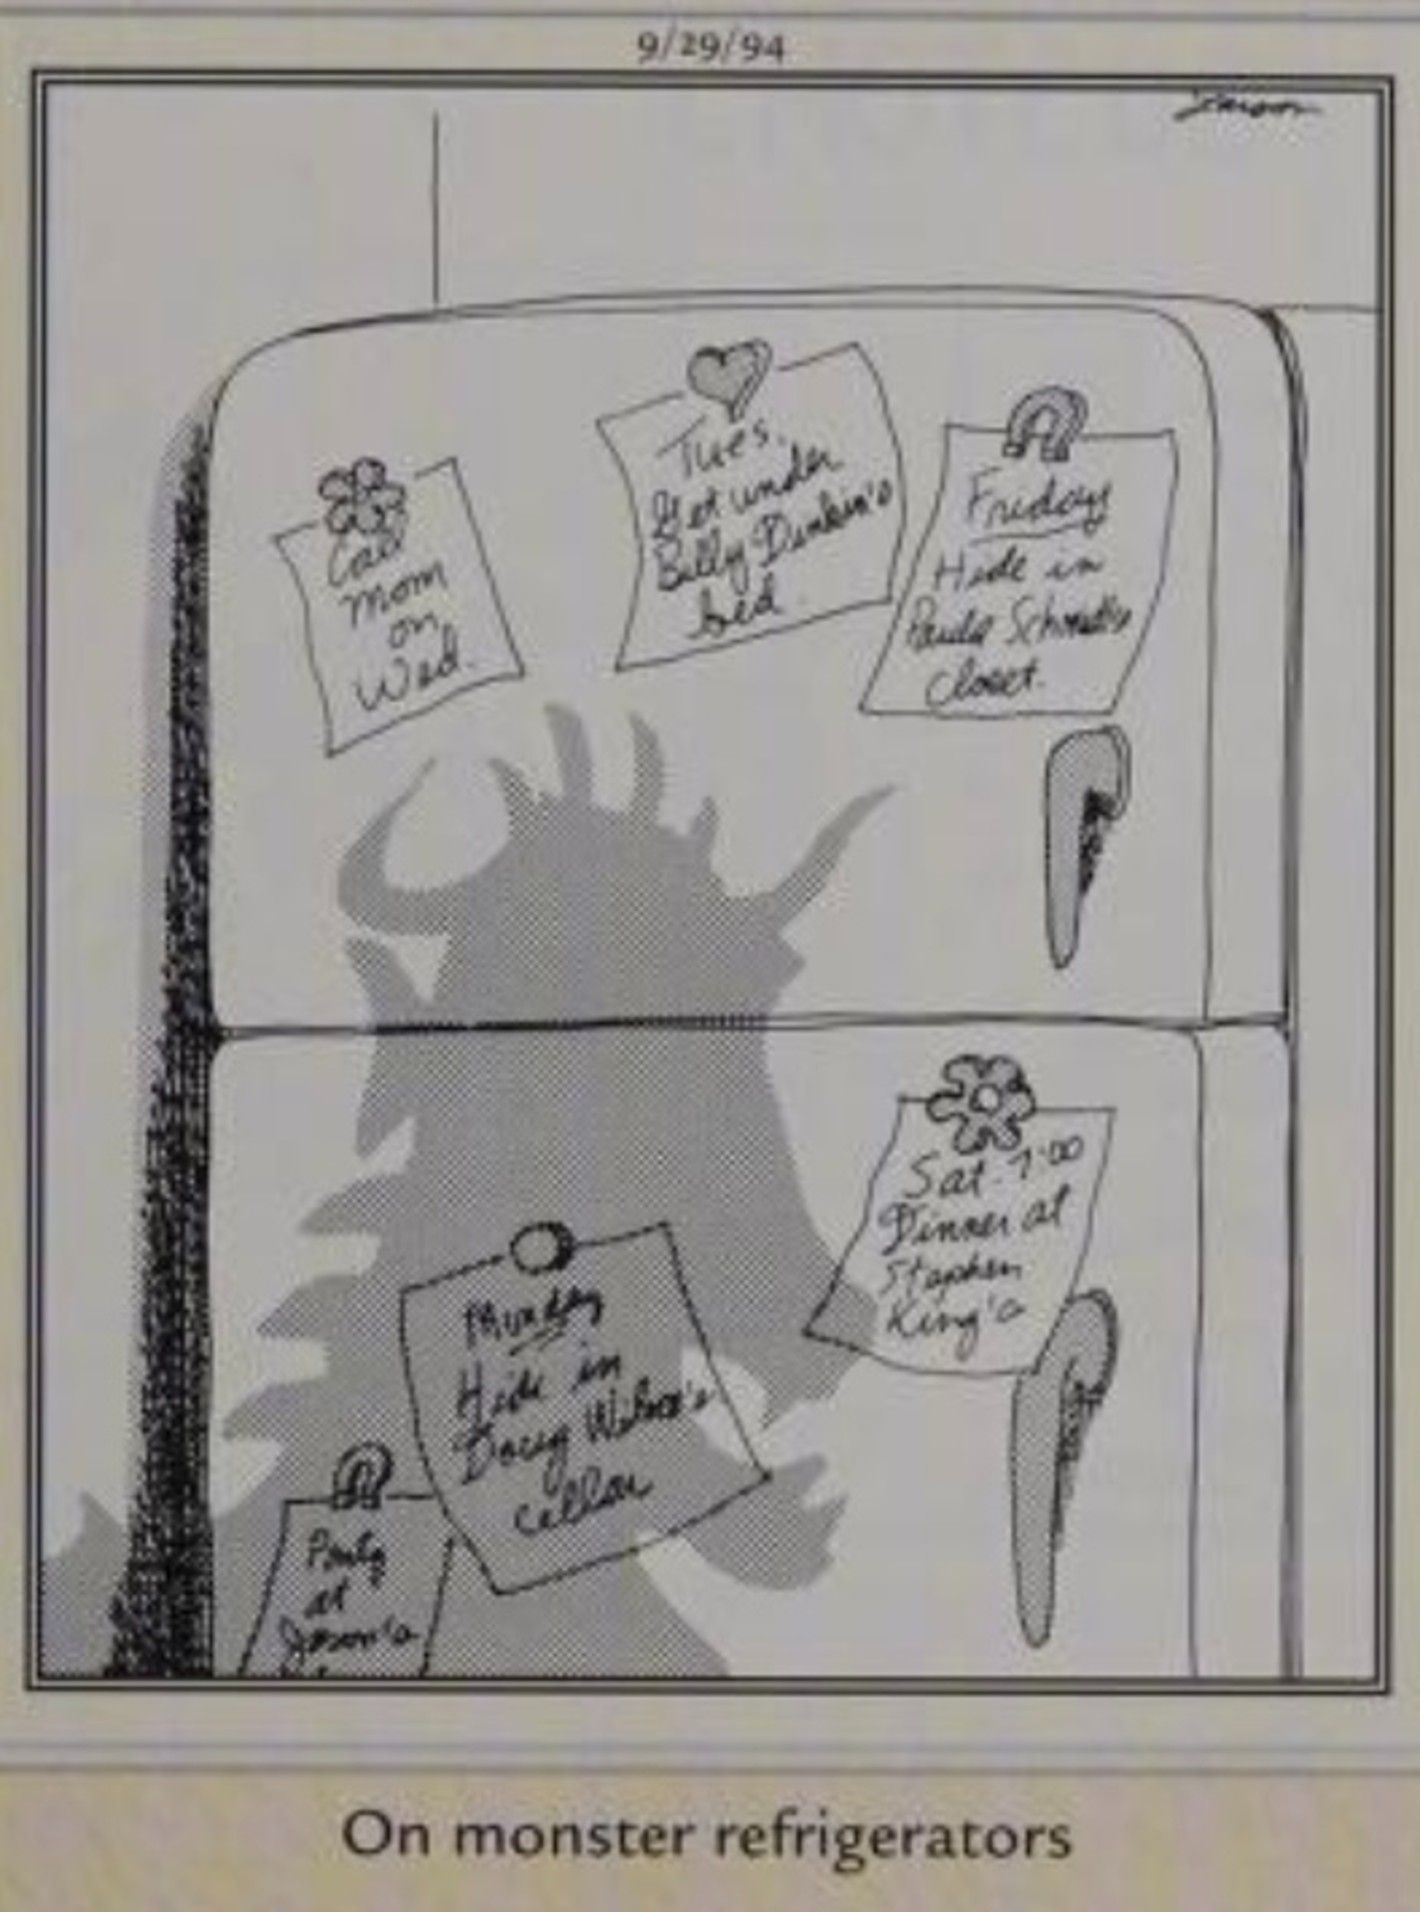 9/29/94
Larson
Call
Mom
on
Wed.
Tues.
Get under
Billy Dunkin's
bed.
Friday
Hide in
Paula
closet.
Sat. 7:00
Dinner at
Stephen
King's
Monday
Hide in
Doug Wilson's
cellar
Party
at
Jason's
On monster refrigerators